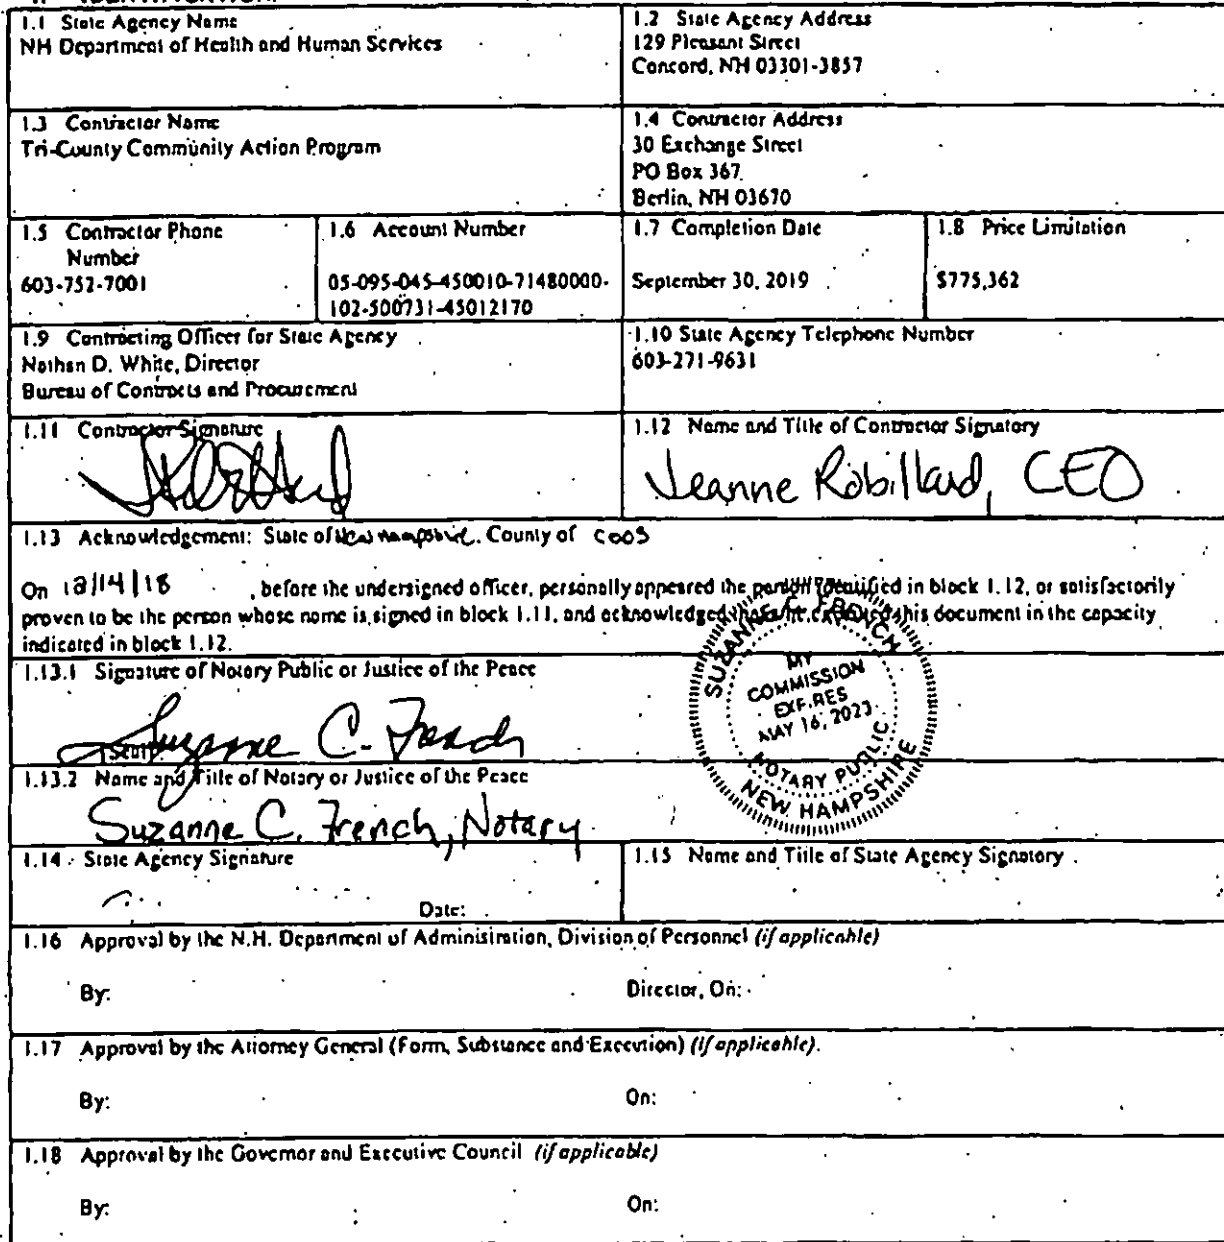 1.1 State Agency Name
NH Department of Health and Human Services
1.2 State Agency Address
129 Pleasant Street
Concord, NH 03301-3857
1.3 Contractor Name
Tri-County Community Action Program
1.4 Contractor Address
30 Exchange Street
PO Box 367
Berlin, NH 03670
1.5 Contractor Phone
Number
603-752-7001
1.6 Account Number
05-095-045-450010-71480000-
102-500731-45012170
1.7 Completion Date
September 30, 2019
1.8 Price Limitation
$775,362
1.9 Contracting Officer for State Agency
Nathan D. White, Director
Bureau of Contracts and Procurement
1.10 State Agency Telephone Number
603-271-9631
1.11 Contractor Signature
1.12 Name and Title of Contractor Signatory
Jeanne Robillard, CEO
1.13 Acknowledgement: State of New Hampshire, County of COOS
On 12/14/18 , before the undersigned officer, personally appeared the person identified in block 1.12, or satisfactorily
proven to be the person whose name is signed in block 1.11, and acknowledged this document in the capacity
indicated in block 1.12.
1.13.1 Signature of Notary Public or Justice of the Peace
Suzanne C. French
SUZANNE C. FRENCH
MY
COMMISSION
EXPIRES
MAY 16, 2023
NOTARY PUBLIC
NEW HAMPSHIRE
1.13.2 Name and Title of Notary or Justice of the Peace
Suzanne C. French, Notary
1.14 State Agency Signature
Date:
1.15 Name and Title of State Agency Signatory
1.16 Approval by the N.H. Department of Administration, Division of Personnel (if applicable)
By:
Director, On:
1.17 Approval by the Attorney General (Form, Substance and Execution) (if applicable)
By:
On:
1.18 Approval by the Governor and Executive Council (if applicable)
By:
On: